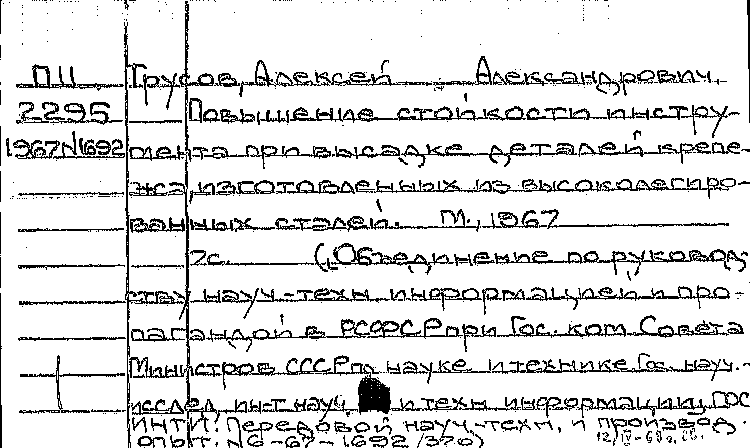 П11 Трусов, Алексей Александрович.
2295 Повышение стойкости инстру-
1967N1692 мента при высадке деталей крепе-
жа, изготовленных из высоколегиро-
ванных сталей. М., 1967
2с. (Объединение по руковод-
ству науч.-техн. информацией и про-
пагандой в РСФСР при Гос. ком. Совета
Министров СССР по науке и технике Гос. науч.-
исслед. ин-т науч. и техн. информации, ГОС
ИНТИ. Передовой науч.-техн. и производ.
опыт. N6-67-1692/370)